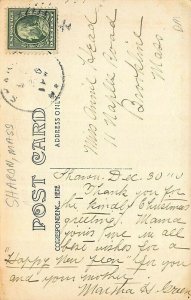 POST CARD
CORRESPONDENCE HERE
ADDRESS ONLY
SHARON, MASS
Miss Annie Head
Brookline
Mass
Sharon, Dec. 30
Thank you for
the kindly Christmas
greeting. Mama
joins me in all
best wishes for a
"Happy New Year" for you
and your mother.
Martha H.